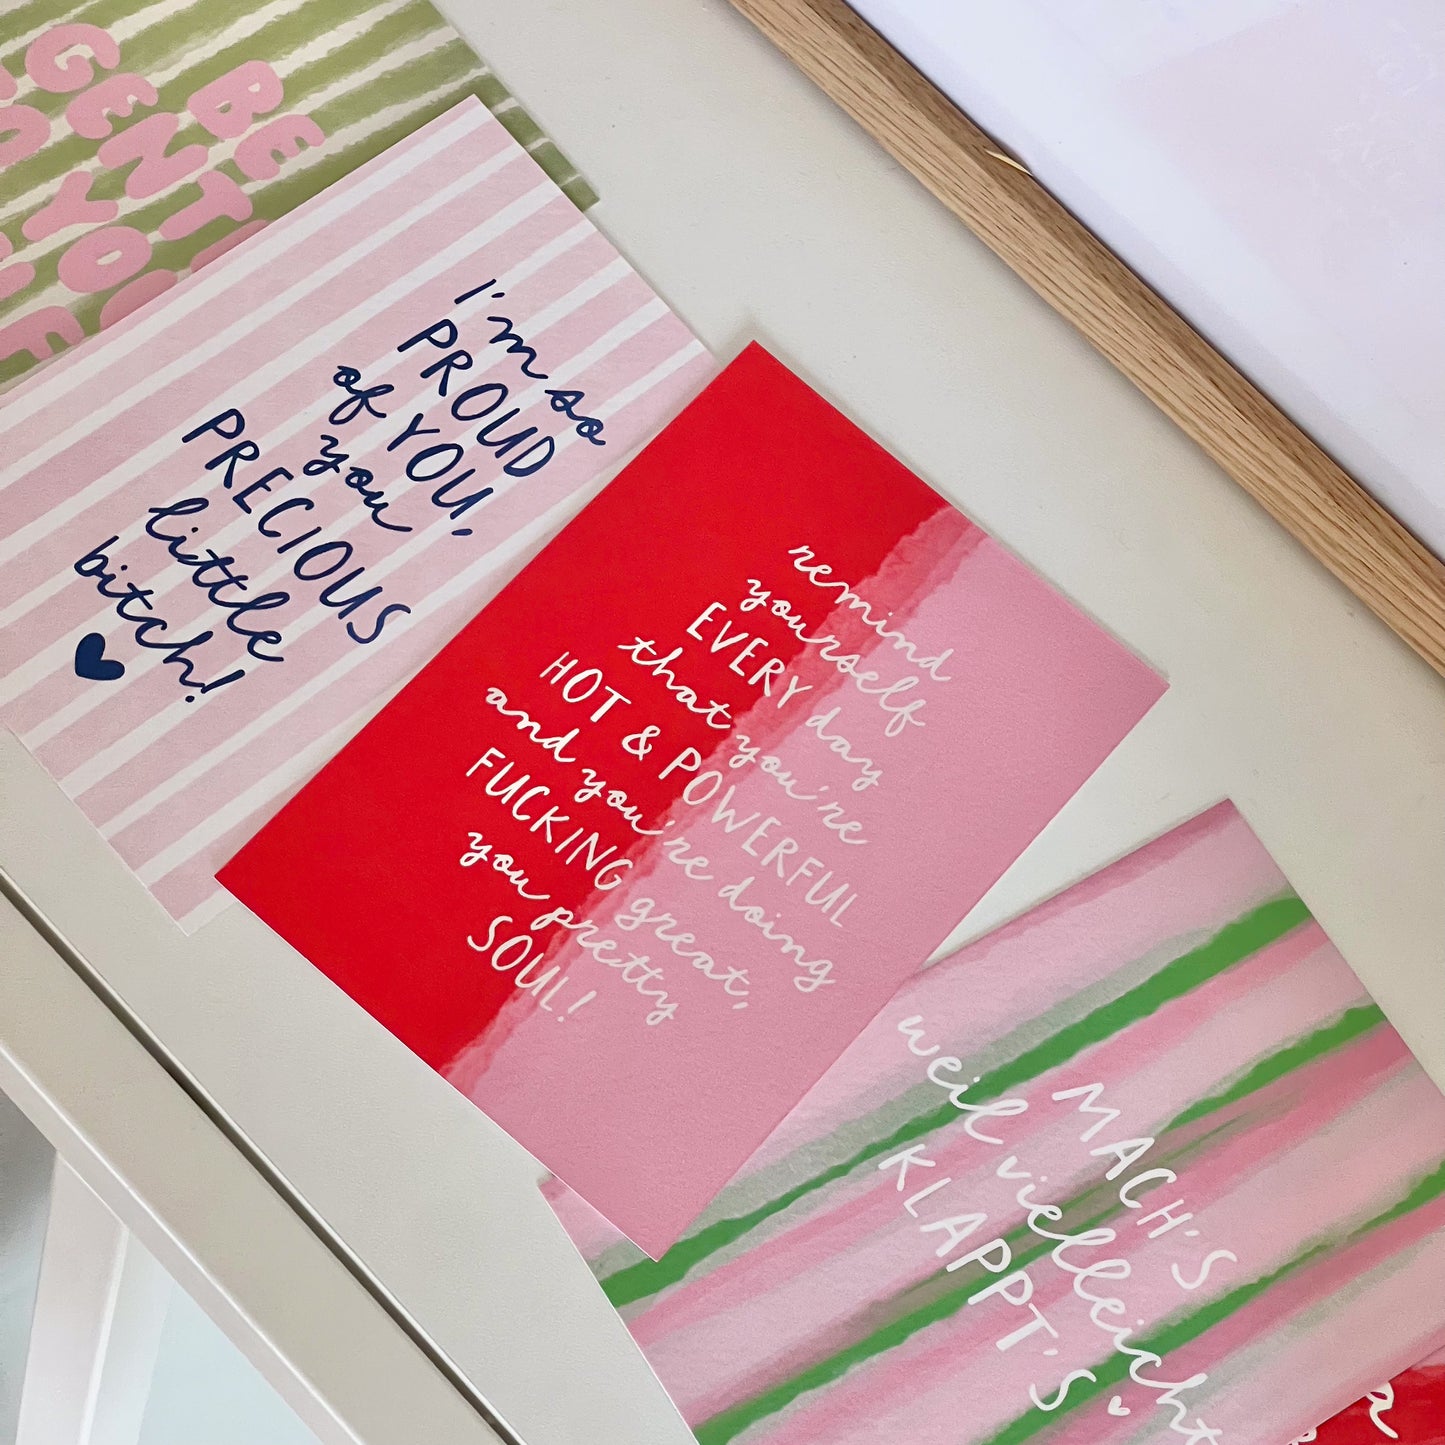 BE
GENT
YOU
I'm so
PROUD
of YOU,
you
PRECIOUS
little
bitch!
remind
yourself
EVERY day
that you're
HOT & POWERFUL
and you're doing
FUCKING great,
you pretty
SOUL!
MACH'S
weil vielleicht
KLAPPT'S